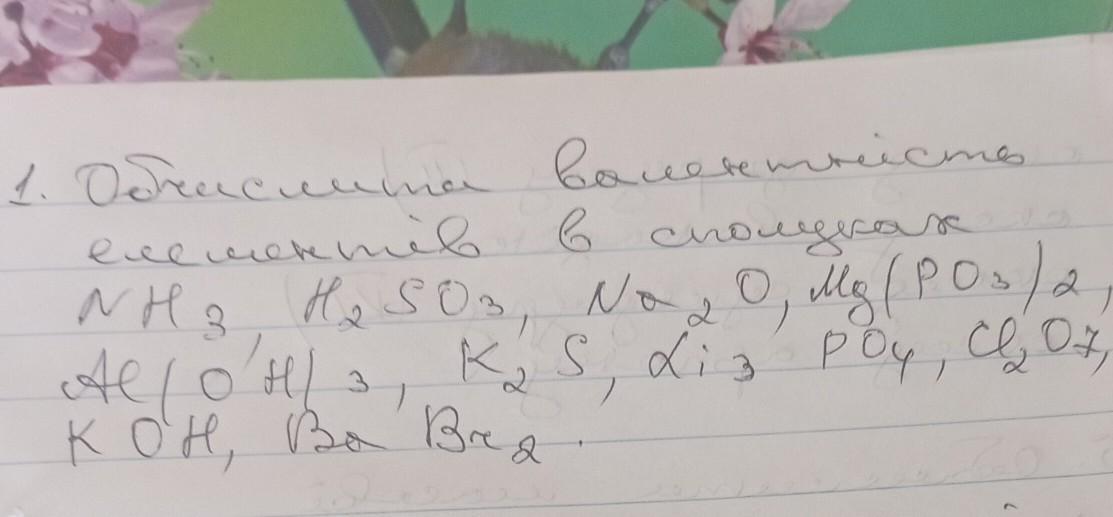 1. Обчислити валентність
елементів в сполуках
NH3, H2SO3, Na2O, Mg(PO3)2,
Al(OH)3, K2S, Li3PO4, Cl2O7,
KOH, BaBr2.